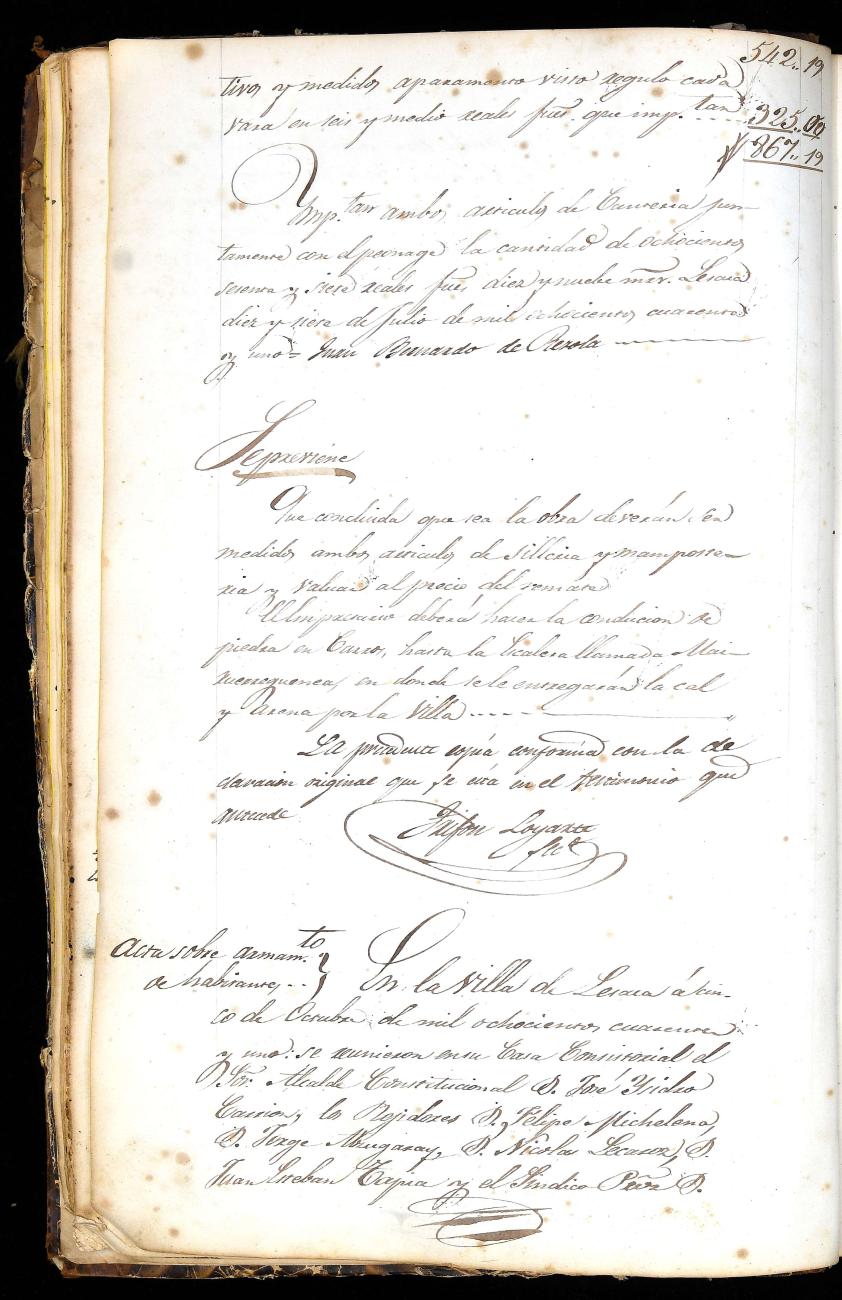 542.. 19
tivos y medidos aparamento visto regulo cada
vara en seis y medio reales ftes. que imp.tan ---- 325.. 00
867.. 19
Imp.tan ambos articulos de Canteria jun-
tamente con el peonage la cantidad de ochocientos
sesenta y siete reales ftes. diez y nuebe mrs. Lesaca
diez y siete de Julio de mil ochocientos cuarenta
y uno = Juan Bernardo de Rezola
Se previene
Que concluida que sea la obra deverán ser
medidos ambos articulos de Silleria y mamposte-
ria y valuar al precio del remate
El Impresario deberá hacer la conducion de
piedra en Carros, hasta la Calera llamada Mai-
ruerreguenea, en donde se le entregarán la cal
y Arena por la Villa
La precedente copia conforma con la de
claracion original que se cita en el testimonio que
antecede
Trifon Loyarte
Sno.
Acta sobre armam.to
de habitantes ..
En la Villa de Lesaca á cin-
co de Octubre de mil ochocientos cuarenta
y uno: se reunieron en su Casa Consistorial el
Sor. Alcalde Constitucional D. José Ysidro
Carrion, los Rejidores D. Felipe Michelena,
D. Jorge Abrugaray, D. Nicolas Lecaroz, D.
Juan Esteban Tapia y el Sindico Pror. D.